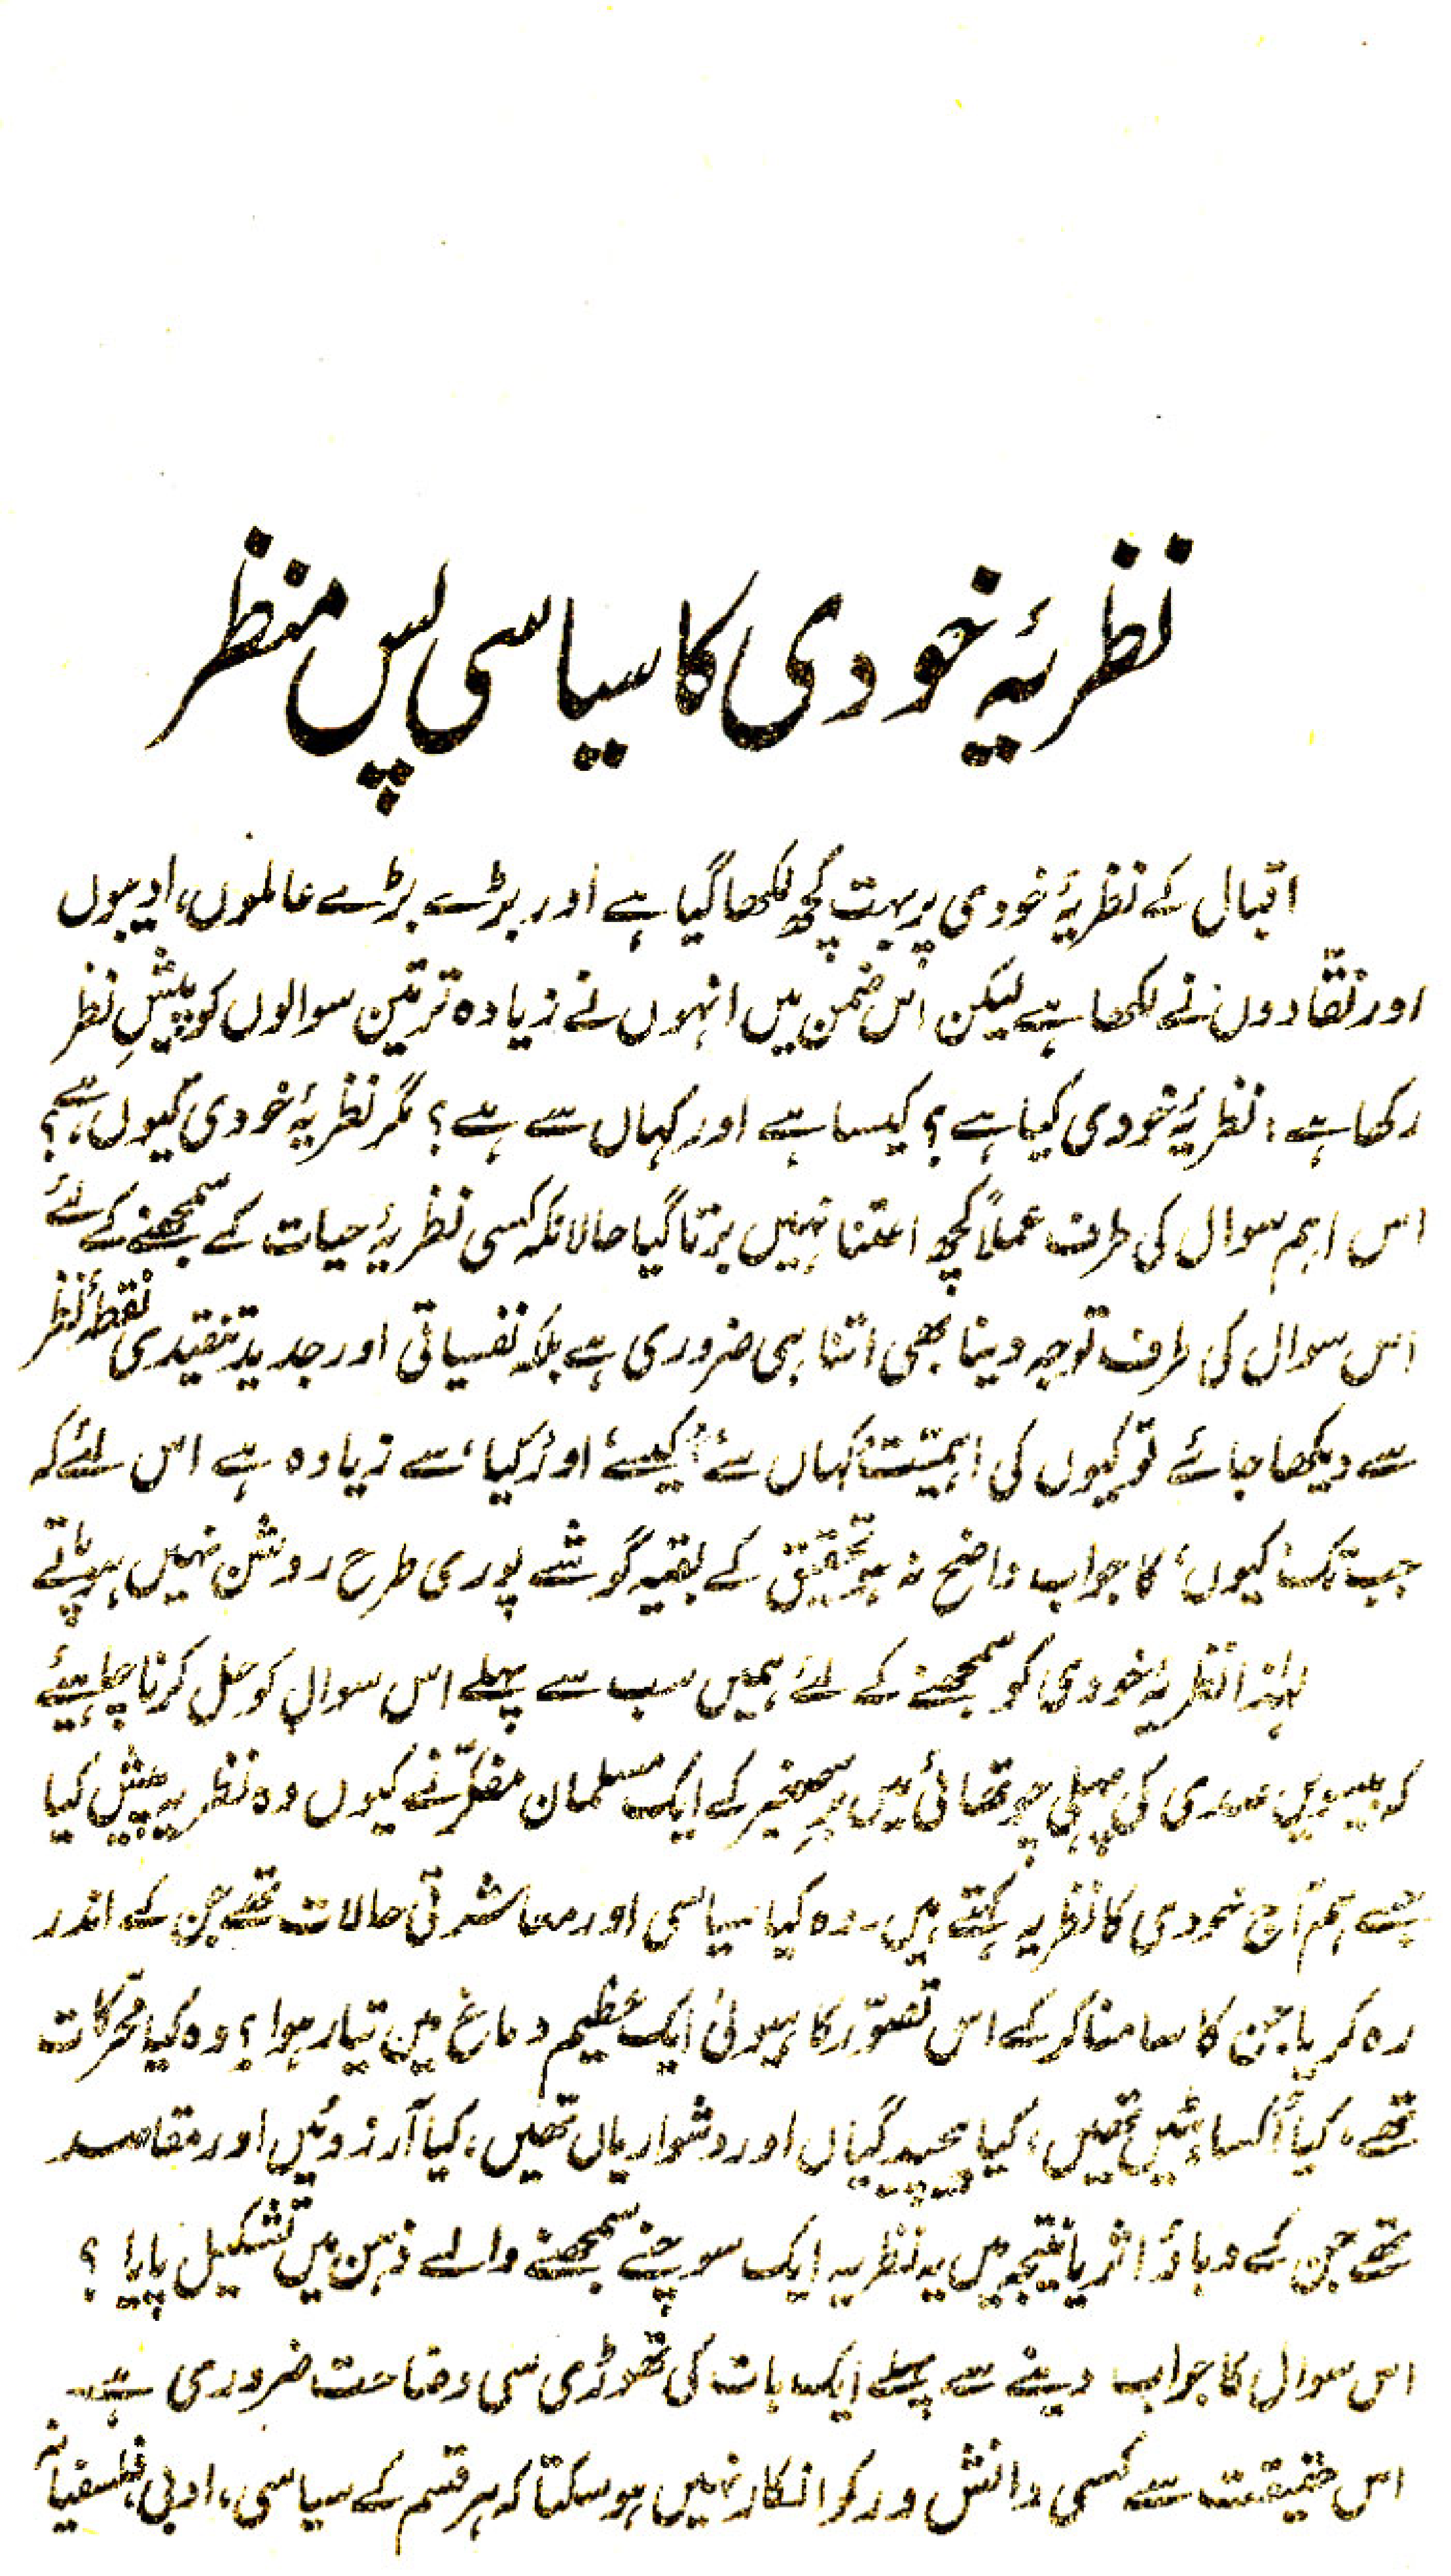 نظریۂ خودی کا سیاسی پس منظر
اقبال کے نظریۂ خودی پر بہت کچھ لکھا گیا ہے اور بڑے بڑے عالموں، ادیبوں
اور نقّادوں نے لکھا ہے لیکن اس ضمن میں انہوں نے زیادہ تر تین سوالوں کو پیشِ نظر
رکھا ہے : نظریۂ خودی کیا ہے ؟ کیسا ہے اور کہاں سے ہے ؟ مگر نظریۂ خودی کیوں ہے ؟
اس اہم سوال کی طرف عملاً کچھ اعتنا نہیں برتا گیا حالانکہ کسی نظریۂ حیات کے سمجھنے کے لئے
اس سوال کی طرف توجہ دینا بھی اتنا ہی ضروری ہے بلکہ نفسیاتی اور جدید تنقیدی نقطۂ نظر
سے دیکھا جائے تو کیوں کی اہمیّت ’کہاں سے‘ ’کیسے‘ اور ’کیا‘ سے زیادہ ہے اس لئے کہ
جب تک ’کیوں‘ کا جواب واضح نہ ہو تحقیق کے بقیہ گوشے پوری طرح روشن نہیں ہو پاتے
لہٰذا نظریۂ خودی کو سمجھنے کے لئے ہمیں سب سے پہلے اس سوال کو حل کرنا چاہیئے
کہ بیسویں صدی کی پہلی چوتھائی میں برِ صغیر کے ایک مسلمان مفکّر نے کیوں وہ نظریہ پیش کیا
جسے ہم آج خودی کا نظریہ کہتے ہیں۔ وہ کیا سیاسی اور معاشرتی حالات تھے جن کے اندر
رہ کر یا جن کا سامنا کر کے اس تصوّر کا ہیولیٰ ایک عظیم دماغ میں تیار ہوا ؟ وہ کیا محرکات
تھے، کیا اُکساہٹیں تھیں، کیا پیچیدگیاں اور دشواریاں تھیں، کیا آرزوئیں اور مقاصد
تھے جن کے دباؤ اثر یا نتیجہ میں یہ نظریہ ایک سوچنے سمجھنے والے ذہن میں تشکیل پایا ؟
اس سوال کا جواب دینے سے پہلے ایک بات کی تھوڑی سی وضاحت ضروری ہے۔
اس حقیقت سے کسی دانش ور کو انکار نہیں ہو سکتا کہ ہر قسم کے سیاسی، ادبی، فلسفیانہ